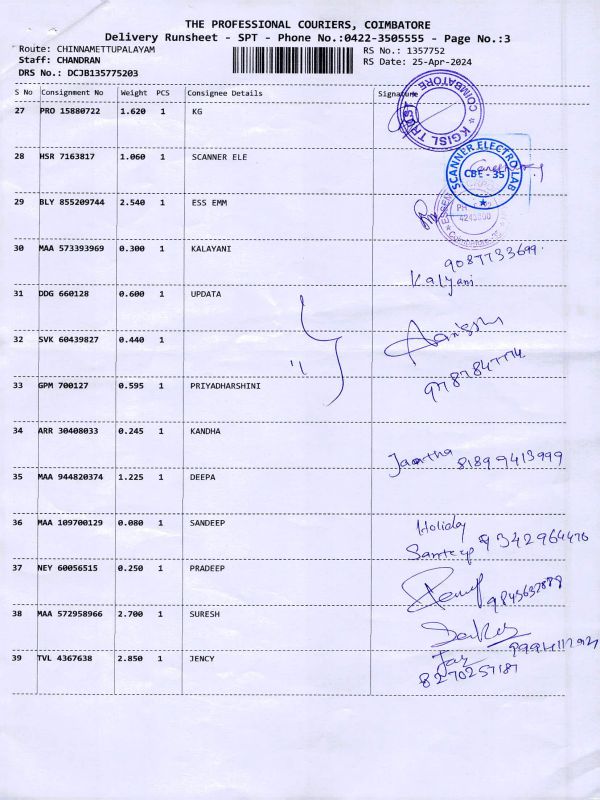 THE PROFESSIONAL COURIERS, COIMBATORE
Delivery Runsheet - SPT - Phone No.:0422-3505555 - Page No.:3
Route: CHINNAMETTUPALAYAM RS No.: 1357752
Staff: CHANDRAN RS Date: 25-Apr-2024
DRS No.: DCJB135775203
S No Consignment No Weight PCS Consignee Details Signature
27 PRO 15880722 1.620 1 KG
KGISL TRUST COIMBATORE
28 HSR 7163817 1.060 1 SCANNER ELE
SCANNER ELECTRO LAB
CBE - 35
29 BLY 855209744 2.540 1 ESS EMM
30 MAA 573393969 0.300 1 KALAYANI
9087733699.
Kalyani
31 DDG 660128 0.600 1 UPDATA
32 SVK 60439827 0.440 1
33 GPM 700127 0.595 1 PRIYADHARSHINI
34 ARR 30408033 0.245 1 KANDHA
81899413999
35 MAA 944820374 1.225 1 DEEPA
36 MAA 109700129 0.080 1 SANDEEP
Holiday
9342964476
37 NEY 60056515 0.250 1 PRADEEP
38 MAA 572958966 2.700 1 SURESH
39 TVL 4367638 2.850 1 JENCY
8270257187